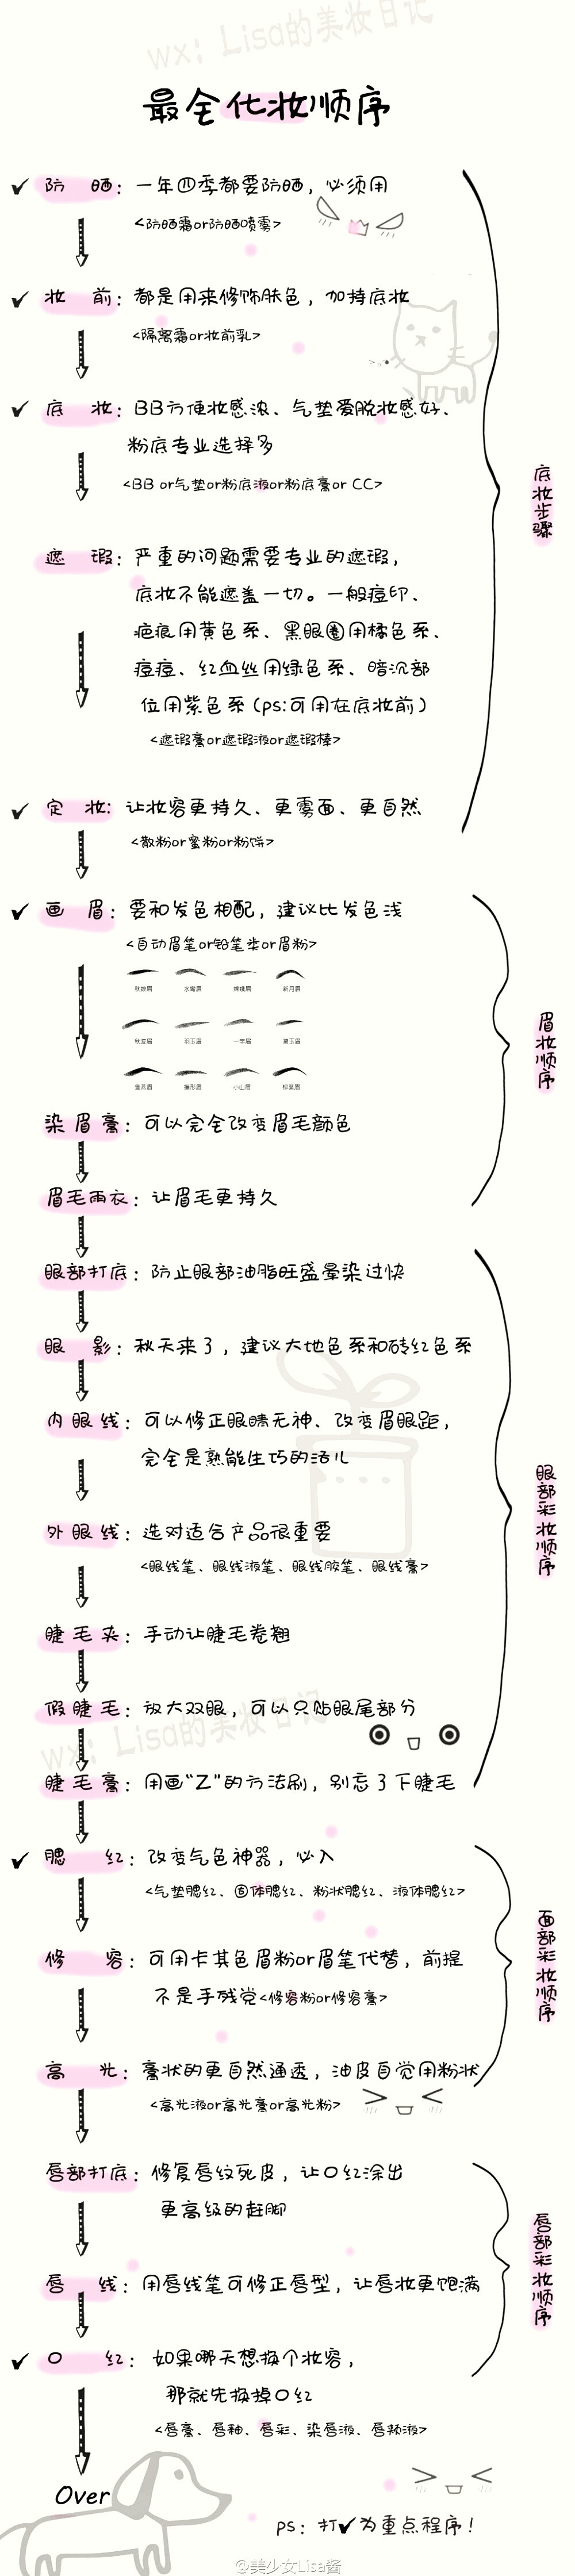 wx: Lisa的美妆日记
最全化妆顺序
✓ 防 晒：一年四季都要防晒，必须用
<防晒霜or防晒喷雾>
✓ 妆 前：都是用来修饰肤色，加持底妆
<隔离霜or妆前乳>
✓ 底 妆：BB方便妆感浓、气垫爱脱妆感好、
粉底专业选择多
<BB or气垫or粉底液or粉底膏or CC>
底妆步骤
遮 瑕：严重的问题需要专业的遮瑕，
底妆不能遮盖一切。一般痘印、
疤痕用黄色系、黑眼圈用橘色系、
痘痘、红血丝用绿色系、暗沉部
位用紫色系（ps:可用在底妆前）
<遮瑕膏or遮瑕液or遮瑕棒>
✓ 定 妆：让妆容更持久、更雾面、更自然
<散粉or蜜粉or粉饼>
✓ 画 眉：要和发色相配，建议比发色浅
<自动眉笔or铅笔类or眉粉>
秋娘眉 水弯眉 嫦娥眉 新月眉
秋波眉 羽玉眉 一字眉 黛玉眉
柳形眉 小山眉 柳叶眉
眉妆顺序
染眉膏：可以完全改变眉毛颜色
眉毛雨衣：让眉毛更持久
眼部打底：防止眼部油脂旺盛晕染过快
眼 影：秋天来了，建议大地色系和砖红色系
内眼线：可以修正眼睛无神、改变眉眼距，
完全是熟能生巧的活儿
眼部彩妆顺序
外眼线：选对适合产品很重要
<眼线笔、眼线液笔、眼线胶笔、眼线膏>
睫毛夹：手动让睫毛卷翘
假睫毛：放大双眼，可以只贴眼尾部分
wx: Lisa的美妆日记
睫毛膏：用画“Z”的方法刷，别忘了下睫毛
✓ 腮 红：改变气色神器，必入
<气垫腮红、固体腮红、粉状腮红、液体腮红>
面部彩妆顺序
修 容：可用卡其色眉粉or眉笔代替，前提
不是手残党<修容粉or修容膏>
高 光：膏状的更自然通透，油皮自觉用粉状
<高光液or高光膏or高光粉>
唇部打底：修复唇纹死皮，让口红涂出
更高级的赶脚
唇部彩妆顺序
唇 线：用唇线笔可修正唇型，让唇妆更饱满
✓ 口 红：如果哪天想换个妆容，
那就先换掉口红
<唇膏、唇釉、唇彩、染唇液、唇颊液>
Over
ps：打✓为重点程序！
@美少女Lisa酱